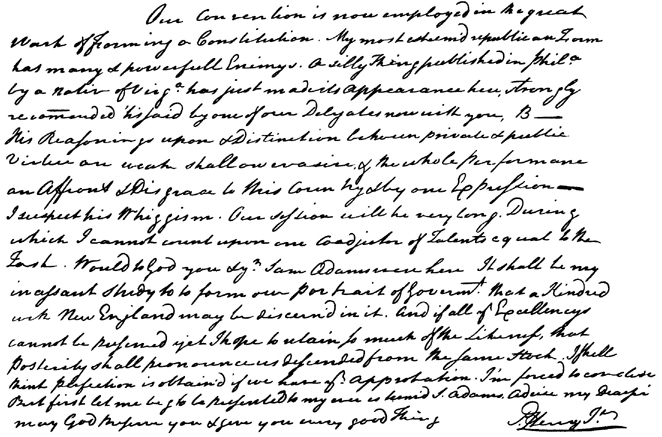 Our Convention is now employed in the great
work of forming a Constitution. My most esteemed republican Form
has many & powerfull Enemys. A silly Thing published in Phila
by a native of Virga has just made its Appearance here, strongly
recommended 'tis said by one of our Delegates now with you, B—
His Reasonings upon & Distinction between private & public
Virtue are weak shallow evasive, & the whole performance
an Affront & Disgrace to this Country & by one Expression—
I suspect his Whiggism. Our session will be very long. During
which I cannot count upon one coadjutor of Talents equal to the
Task. Would to God you & yr Sam Adams were here It shall be my
incessant study to to form our portrait of Governmt that a Kindred
with New England may be discern'd in it. And if all of Excellencys
cannot be preserved yet I hope to retain so much of the Likeness, that
Posterity shall pronounce us descended from the same Stock. I shall
think perfection is obtain'd if we have yr Approbation. I'm forced to conclude
But first let me beg to be presented to my ever esteemd S. Adams. Adieu my dear
may God preserve you & give you every good Thing
P. Henry Jr.